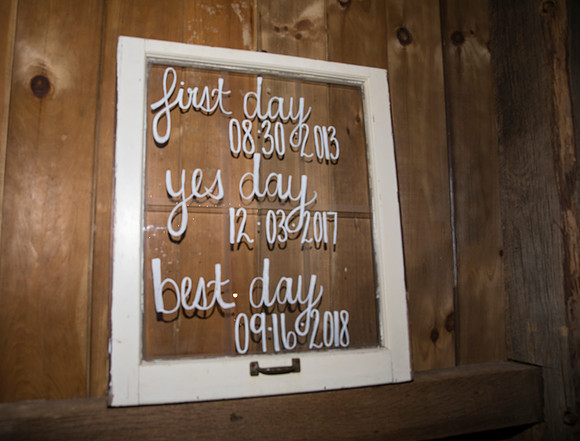 first day
08·30·2013
yes day
12·03·2017
best day
09·16·2018